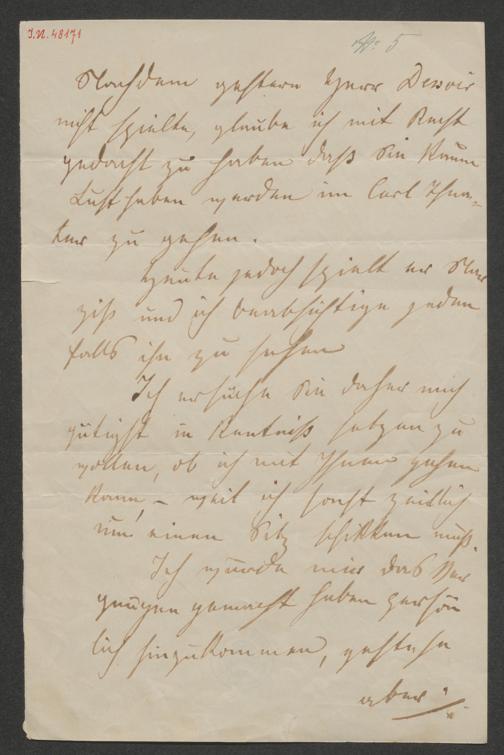 J.N. 48171
No. 5
Nachdem gestern Herr Dessoir
nicht spielte, glaube ich mit Recht
gedacht zu haben daß Sie kaum
Lust haben werden im Carl Thea-
ter zu gehen.
Heute jedoch spielt er Nar
ziß und ich beabsichtige jeden
falls ihn zu sehen
Ich ersuche Sie daher mich
gütigst in Kentniß setzen zu
wollen, ob ich mit Ihnen gehen
kann, – weil ich sonst zeitlich
um einen Sitz schikken muß.
Ich würde mir das Ver
gnügen gemacht haben persön
lich hinzukommen, gestehe
aber ./.